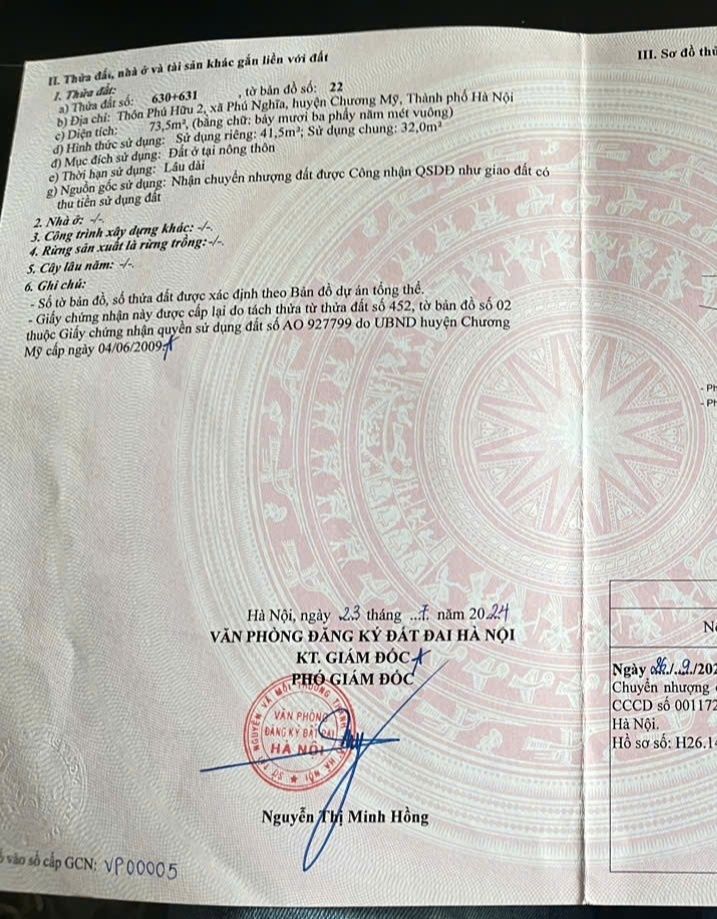 II. Thửa đất, nhà ở và tài sản khác gắn liền với đất
1. Thửa đất:
a) Thửa đất số: 630+631 , tờ bản đồ số: 22
b) Địa chỉ: Thôn Phú Hữu 2, xã Phú Nghĩa, huyện Chương Mỹ, Thành phố Hà Nội
c) Diện tích: 73,5m², (bằng chữ: bảy mươi ba phẩy năm mét vuông)
d) Hình thức sử dụng: Sử dụng riêng: 41,5m²; Sử dụng chung: 32,0m²
đ) Mục đích sử dụng: Đất ở tại nông thôn
e) Thời hạn sử dụng: Lâu dài
g) Nguồn gốc sử dụng: Nhận chuyển nhượng đất được Công nhận QSDĐ như giao đất có
thu tiền sử dụng đất
2. Nhà ở: -/-.
3. Công trình xây dựng khác: -/-.
4. Rừng sản xuất là rừng trồng: -/-.
5. Cây lâu năm: -/-.
6. Ghi chú:
- Số tờ bản đồ, số thửa đất được xác định theo Bản đồ dự án tổng thể.
- Giấy chứng nhận này được cấp lại do tách thửa từ thửa đất số 452, tờ bản đồ số 02
thuộc Giấy chứng nhận quyền sử dụng đất số AO 927799 do UBND huyện Chương
Mỹ cấp ngày 04/06/2009
Hà Nội, ngày 23 tháng 7 năm 2024
VĂN PHÒNG ĐĂNG KÝ ĐẤT ĐAI HÀ NỘI
KT. GIÁM ĐỐC
PHÓ GIÁM ĐỐC
VĂN PHÒNG
ĐĂNG KÝ ĐẤT ĐAI
HÀ NỘI
Nguyễn Thị Minh Hồng
vào sổ cấp GCN: VP00005
III. Sơ đồ
Ngày 26/9/202
Chuyển nhượng
CCCD số 001172
Hà Nội.
Hồ sơ số: H26.1